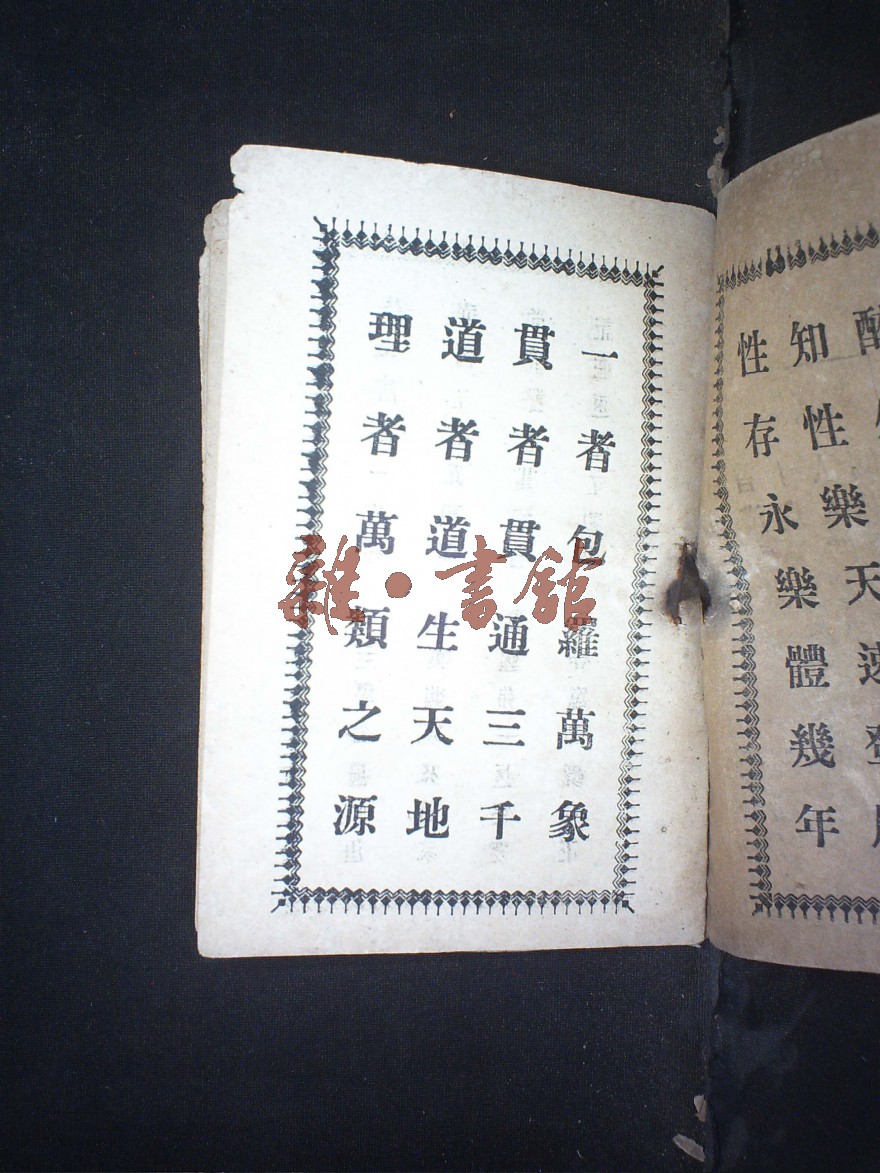 性存永樂體幾年
知性樂天
一者包羅萬象
貫者貫通三千
道者道生天地
理者萬類之源
雜·書館